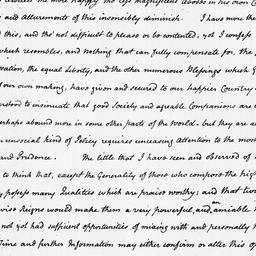 rendered the more happy tho' less magnificent Abodes in his own C
and allurements of this insensibly diminish. I have more the
d this, and tho' not difficult to please or be contented, yet I confess
which resembles, and nothing that can fully compensate for, the f
ation, the equal Liberty, and the other numerous Blessings which G
of our own making, have given and secured to our happier Country
erstood to insinuate that good Society and agreable Companions are
erhaps abound more in some other parts of the world. but they are a
an unsocial kind of Policy requires unceasing Attention to the most
and Prudence. The little that I have seen and observed of
to think that, except the Generality of those who compose the high
y possess many Qualities which are praise worthy; and that two
wise Reigns would make them a very powerful, and an amiable
not yet had sufficient opportunities of mixing with and personally
Time and further Information may either confirm or alter this op